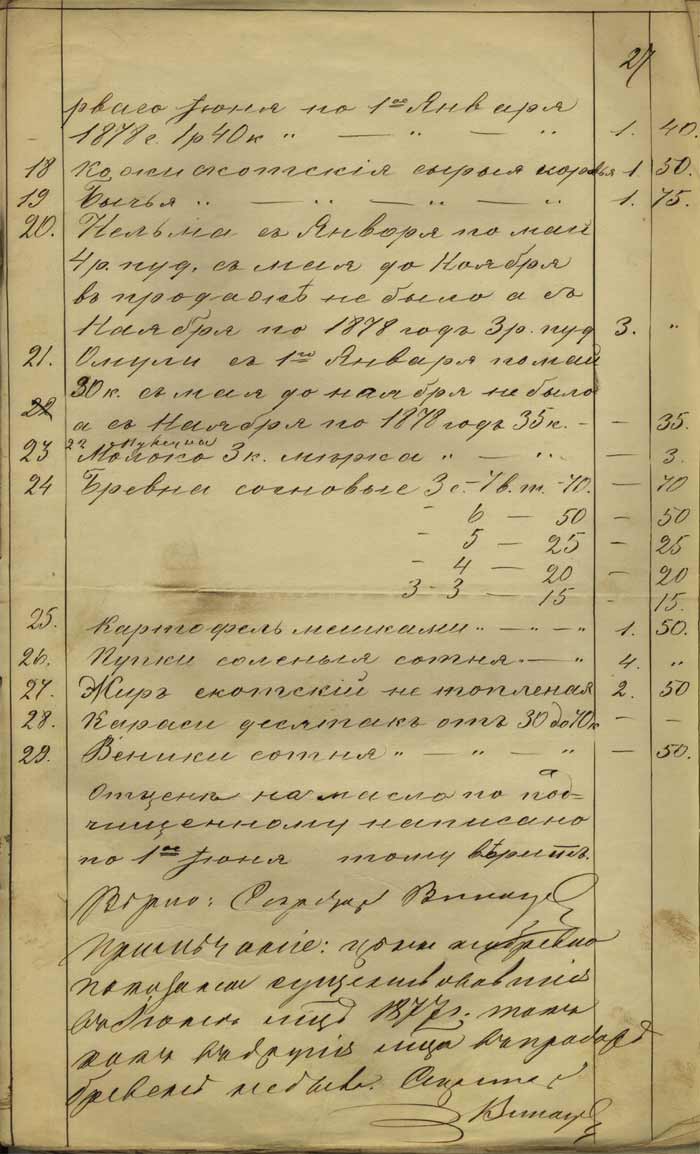 27
рваго Іюня по 1ое Января
1878 г. 1 р 40 к " — " — " 1. 40.
18 Кожи скотскія сырыя коровья 1 50.
19 Бычья " — " — " — " 1. 75.
20. Нельма съ Января по май
4 р. пуд. съ мая до Ноября
въ продажѣ не было а съ
Наября по 1878 годъ 3 р. пуд 3. "
21. Омули съ 1го Января по май
30 к. съ мая до наября не было
22 а съ Наября по 1878 годъ 35 к. - — 35.
22
23 Молоко 3 к. мѣрка " — " — 3.
24 Бревна сосновые 3 с. – 7 в. т. - 70. — 70
- 6 — 50 — 50
- 5 — 25 — 25
- 4 — 20 — 20
3 - 3 — 15 — 15.
25. Картофель мешками " — " — " 1. 50.
26. Пупки соленыя сотня. — " 4. "
27. Жиръ скотскій не топленая 2. 50
28. Караси десятакъ отъ 30 до 40 к — —
29. Веники сотня " — " — " — 50.
Отценк на масло по под=
чищенному написано
по 1ое Іюня тому вѣрить.
Вѣрно:
Примѣчаніе: цены на бревна
показаны существовавшія
въ 1877 г. такъ
какъ въ другія въ
бревенъ не было.